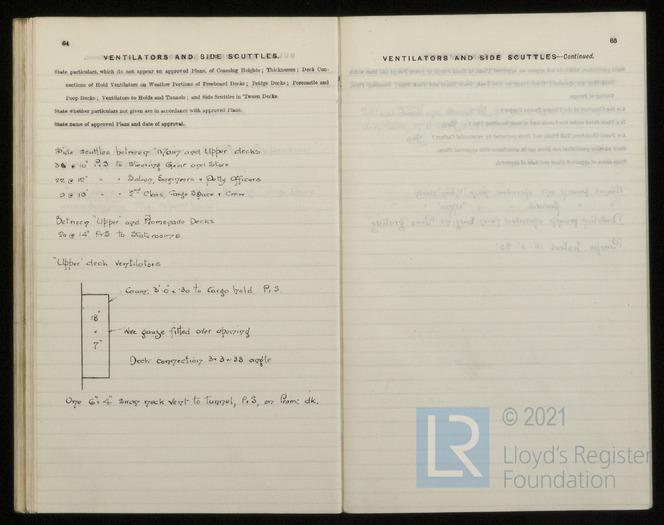 64
VENTILATORS AND SIDE SCUTTLES.
State particulars, which do not appear on approved Plans, of Coaming Heights; Thicknesses; Deck Con-
nections of Hold Ventilators on Weather Portions of Freeboard Decks; Bridge Decks; Forecastle and
Poop Decks; Ventilators to Holds and Tunnels; and Side Scuttles in 'Tween Decks.
State whether particulars not given are in accordance with approved Plans.
State name of approved Plan and date of approval.
Side scuttles between "Main and Upper" decks
@ 10" P.S to Steering Gear and Store
22 @ 12" " " Saloon, Engineers & Petty Officers
9 @ 10" " " 2nd Class, Cargo Space & Crew
Between "Upper" and Promenade Decks
20 @ 14" P&S to Staterooms
"Upper" deck ventilators
Coam: 3'-0" x .30 to Cargo hold P.S.
18"
x
7"
Wire gauze fitted over opening
Deck connection 3 x 3 x .38 angle
One 6" x 4" Swan neck vent to Tunnel, P&S, on Prom: dk.
65
VENTILATORS AND SIDE SCUTTLES—Continued.
LR
© 2021
Lloyd's Register
Foundation